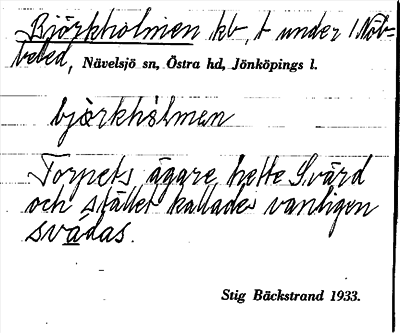 Björkholmen kb, t under 1 Nöb-
beled, Nävelsjö sn, Östra hd, Jönköpings l.
bjàrkhòlmen
Torpets ägare hette Svärd
och stället kallades vanligen
svädas.
Stig Bäckstrand 1933.